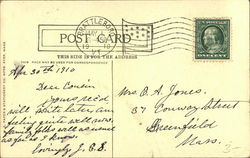 BRATTLEBORO
MAY
1910
VT.
POST CARD
THIS SIDE IS FOR THE ADDRESS
THIS SPACE MAY BE USED FOR CORRESPONDENCE
Apr 30th 1910
Dear Cousin
Yours rec'd
will write later am
feeling quite well now.
family folks well as usual
as far as I know.
Lovingly J. E. S.
Mrs. O. A. Jones.
37 Conway Street
Greenfield
Mass.